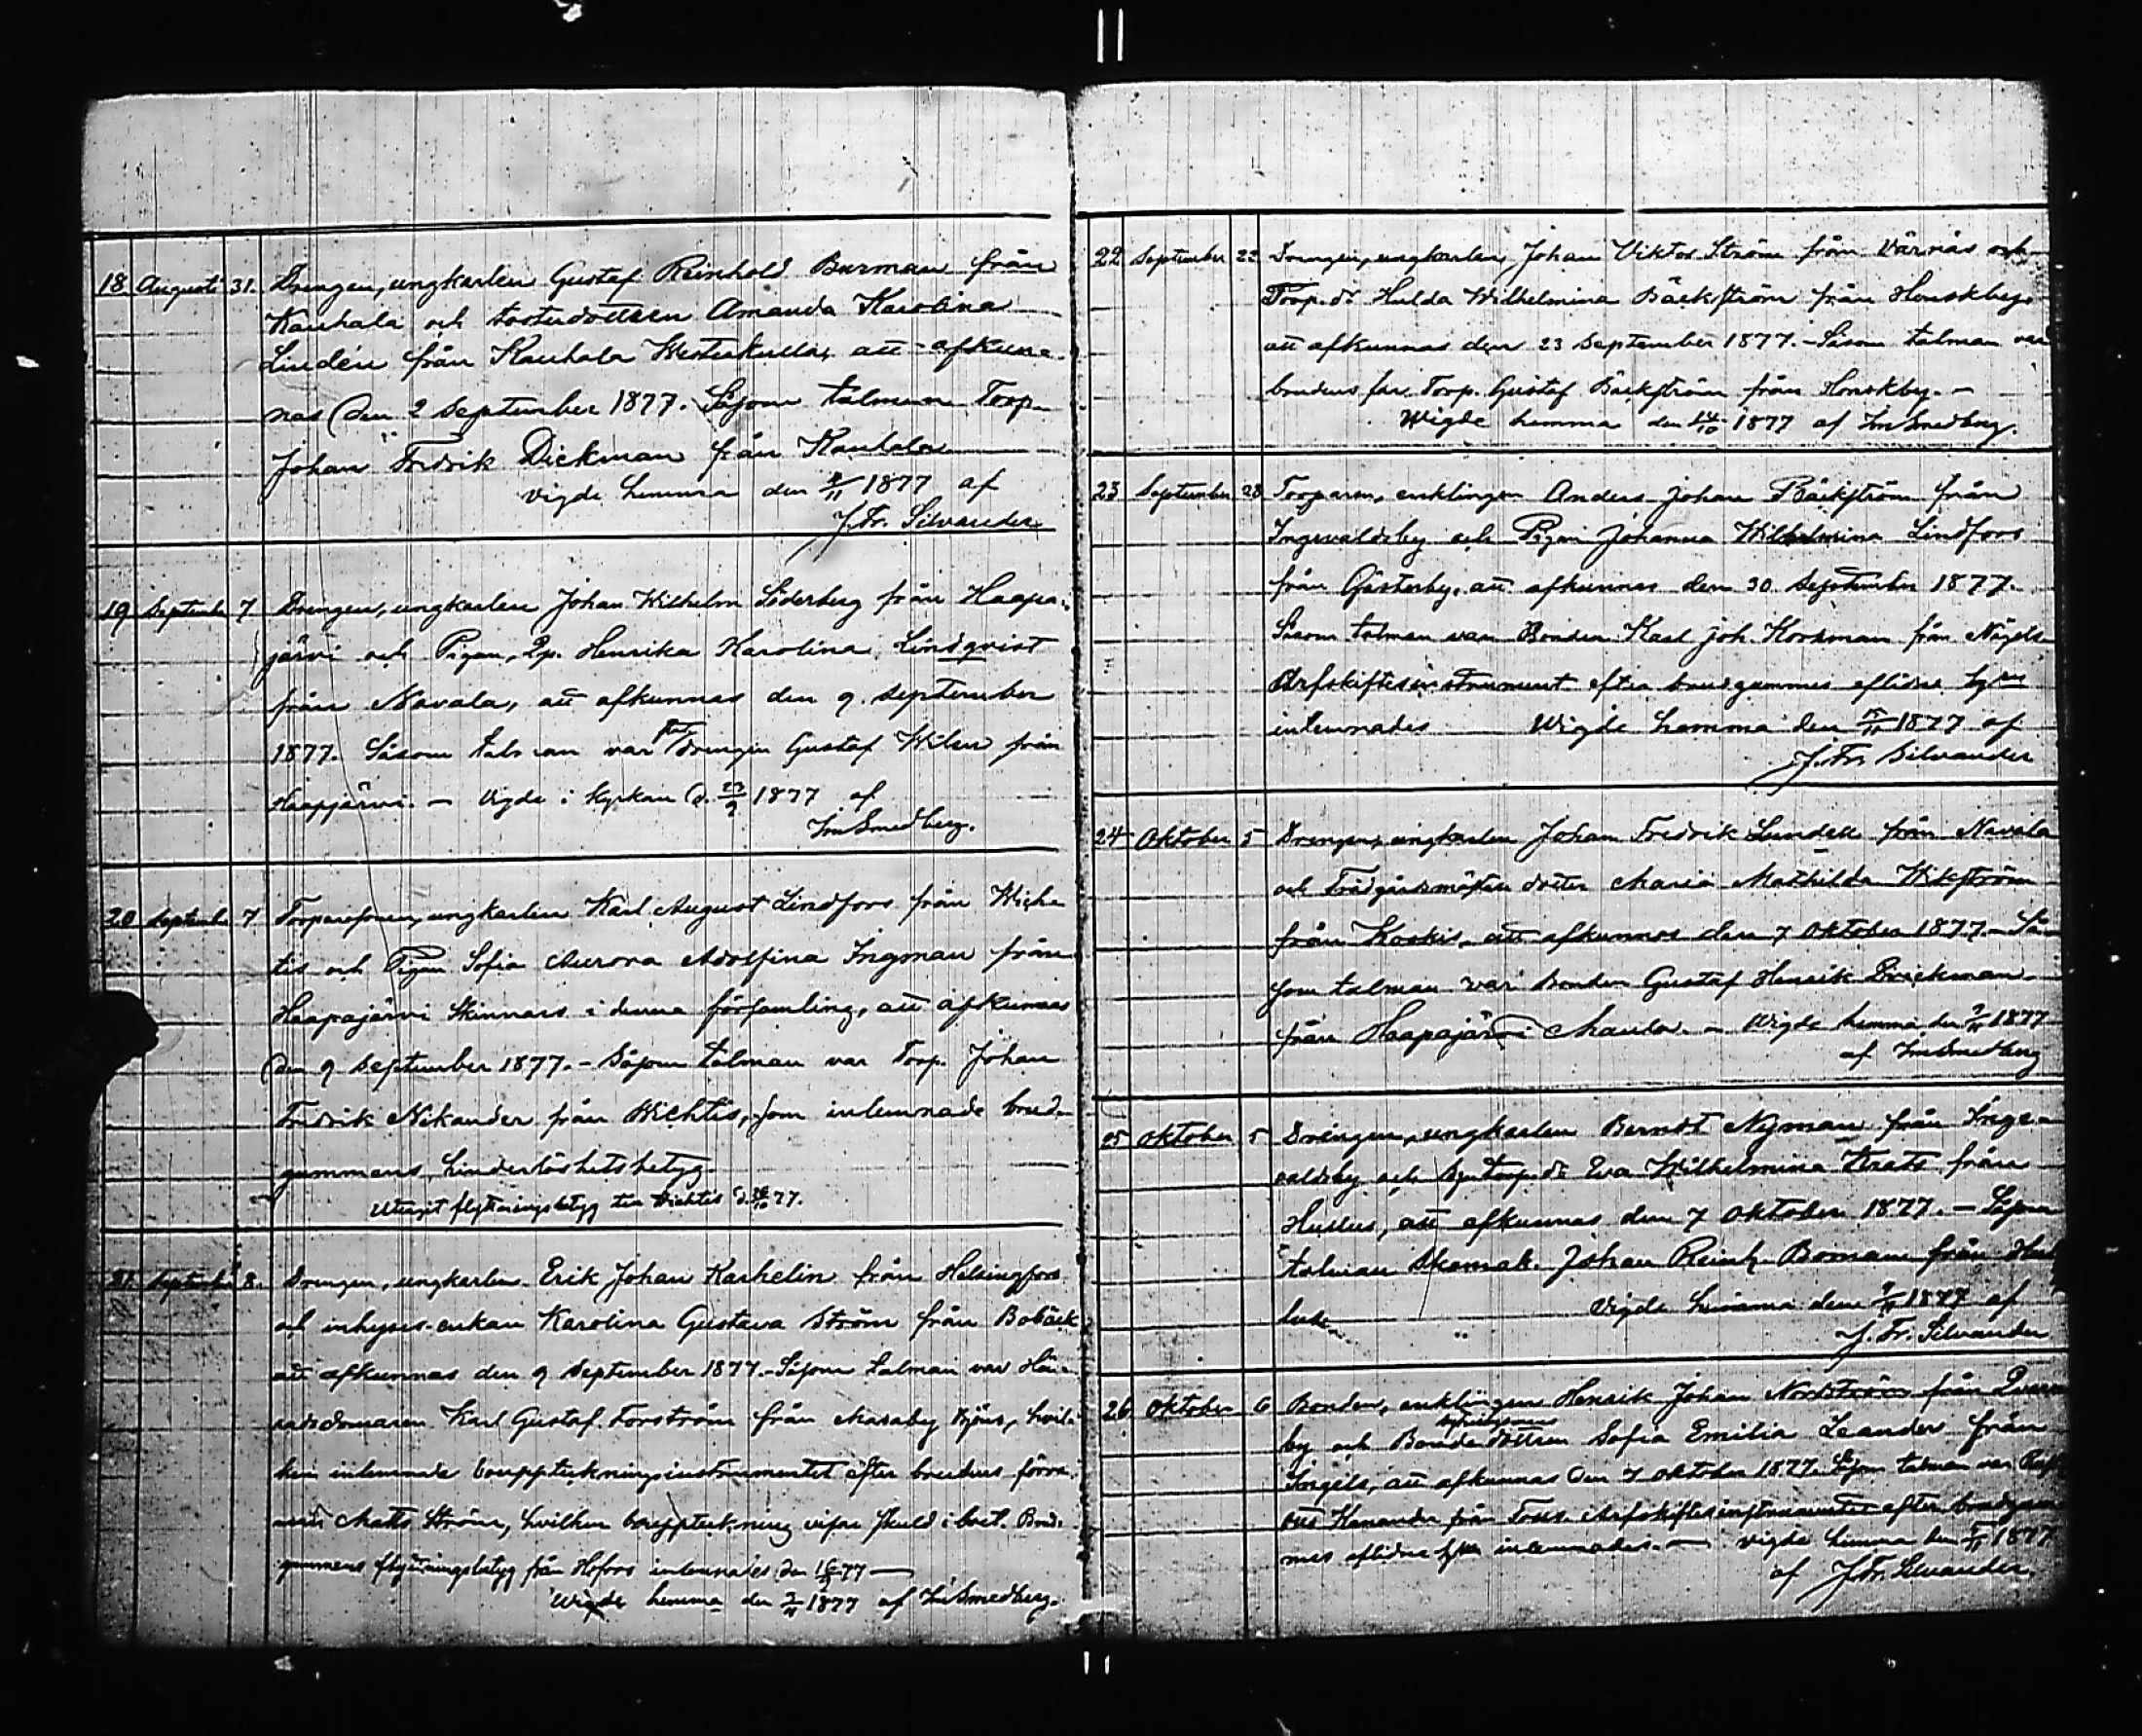 18 Augusti 31. Drengen, ungkarlen Gustaf Reinhold Burman från
Kauhala och torpdottren Amanda Karolina
Lindén från Kauhala Westerkulla, att afkun-
nas den 2 September 1877. Såsom talman Torp.
Johan Fredrik Dickman från Kauhala
vigde hemma den /11 1877 af
J. Fr. Silvander
19 September 7 Drengen, ungkarlen Johan Wilhelm Söderberg från Haapa-
järvi och Pigan, Qp. Henrika Karolina Lindqvist
från Navala, att afkunnas den 9 September
1877. Såsom talman var drengen Gustaf Wilen från
Haapjärvi. — Vigde i kyrkan d. 23/9 1877 af
Im Smedberg.
20 September 7 Torparesonen, ungkarlen Karl August Lindfors från Wich-
tis och Pigan Sofia Aurora Adolfina Ingman från
Haapajärvi Skinnars i denna församling, att afkunnas
den 9 September 1877. - Såsom talman var Torp. Johan
Fredrik Nikander från Wichtis, som inlemnade brud-
gummens hinderlöshetsbetyg
Utengit flyttningsbetyg till Wichtis d. /10 77.
21 September 8. Drengen, ungkarlen Erik Johan Karhelin från Helsingfors
och inhyses-enkan Karolina Gustava Ström från Bobäck
att afkunnas den 9 September 1877. - Såsom talman var Hä-
radsdomaren Karl Gustaf Forström från Masaby Björs, hvil-
ken inlemnade bouppteckningsinstrumentet efter brudens förra
man Matts Ström, hvilken bouppteckning visar skuld i boet. Brud-
gummens flyttningsbetyg från Hfors inlemnades den 77 —
Wigde hemma den /11 1877 af Im Smedberg.
22 September 22 Drengen, ungkarlen Johan Viktor Ström från Värnäs och
Torp. dr Hulda Wilhelmina Bäckström från Honskby,
att afkunnas den 23 September 1877. - Såsom talman var
brudens far Torp. Gustaf Bäckström från Honskby. —
Wigde hemma den 14/10 1877 af Im Smedberg.
23 September 28 Torparen, enklingen Anders Johan Bäckström från
Ingevaldsby och Pigan Johanna Wilhelmina Lindfors
från Gästerby, att afkunnas den 30 September 1877.
Såsom talman var Bonden Karl Joh. från
Arfskiftesinstrument efter brudgummes aflidne hustru
inlemnades Wigde hemma den /11 1877 af
J. Fr. Silvander
24 Oktober 5 Drengen, ungkarlen Johan Fredrik Lundell från Navala
och Trädgårdsmästare dotter Maria Mathilda Wikström
från Koskis, att afkunnas den 7 Oktober 1877. - Så-
som talman var Bonden Gustaf Henrik Dickman
från Haapajärvi Maula. — Wigde hemma den /11 1877
af Im Smedberg
25 Oktober 5 Drengen, ungkarlen Berndt Nyman från Inge-
valdsby och torp. dr Eva Wilhelmina från
att afkunnas den 7 Oktober 1877. — Såsom
talman Skomak. Johan Reinh. Boman från
Vigde hemma den /11 1877 af
J. Fr. Silvander
26 Oktober 6 Bonden, enklingen Henrik Johan Nordström från
by och Bondedottren Sofia Emilia Leander från
Ingels, att afkunnas den 7 Oktober 1877. Såsom talman var
från Arfskiftesinstrumentet efter brudgum-
mes aflidne inlemnades. — vigde hemma den /11 1877
af J. Fr. Silvander.